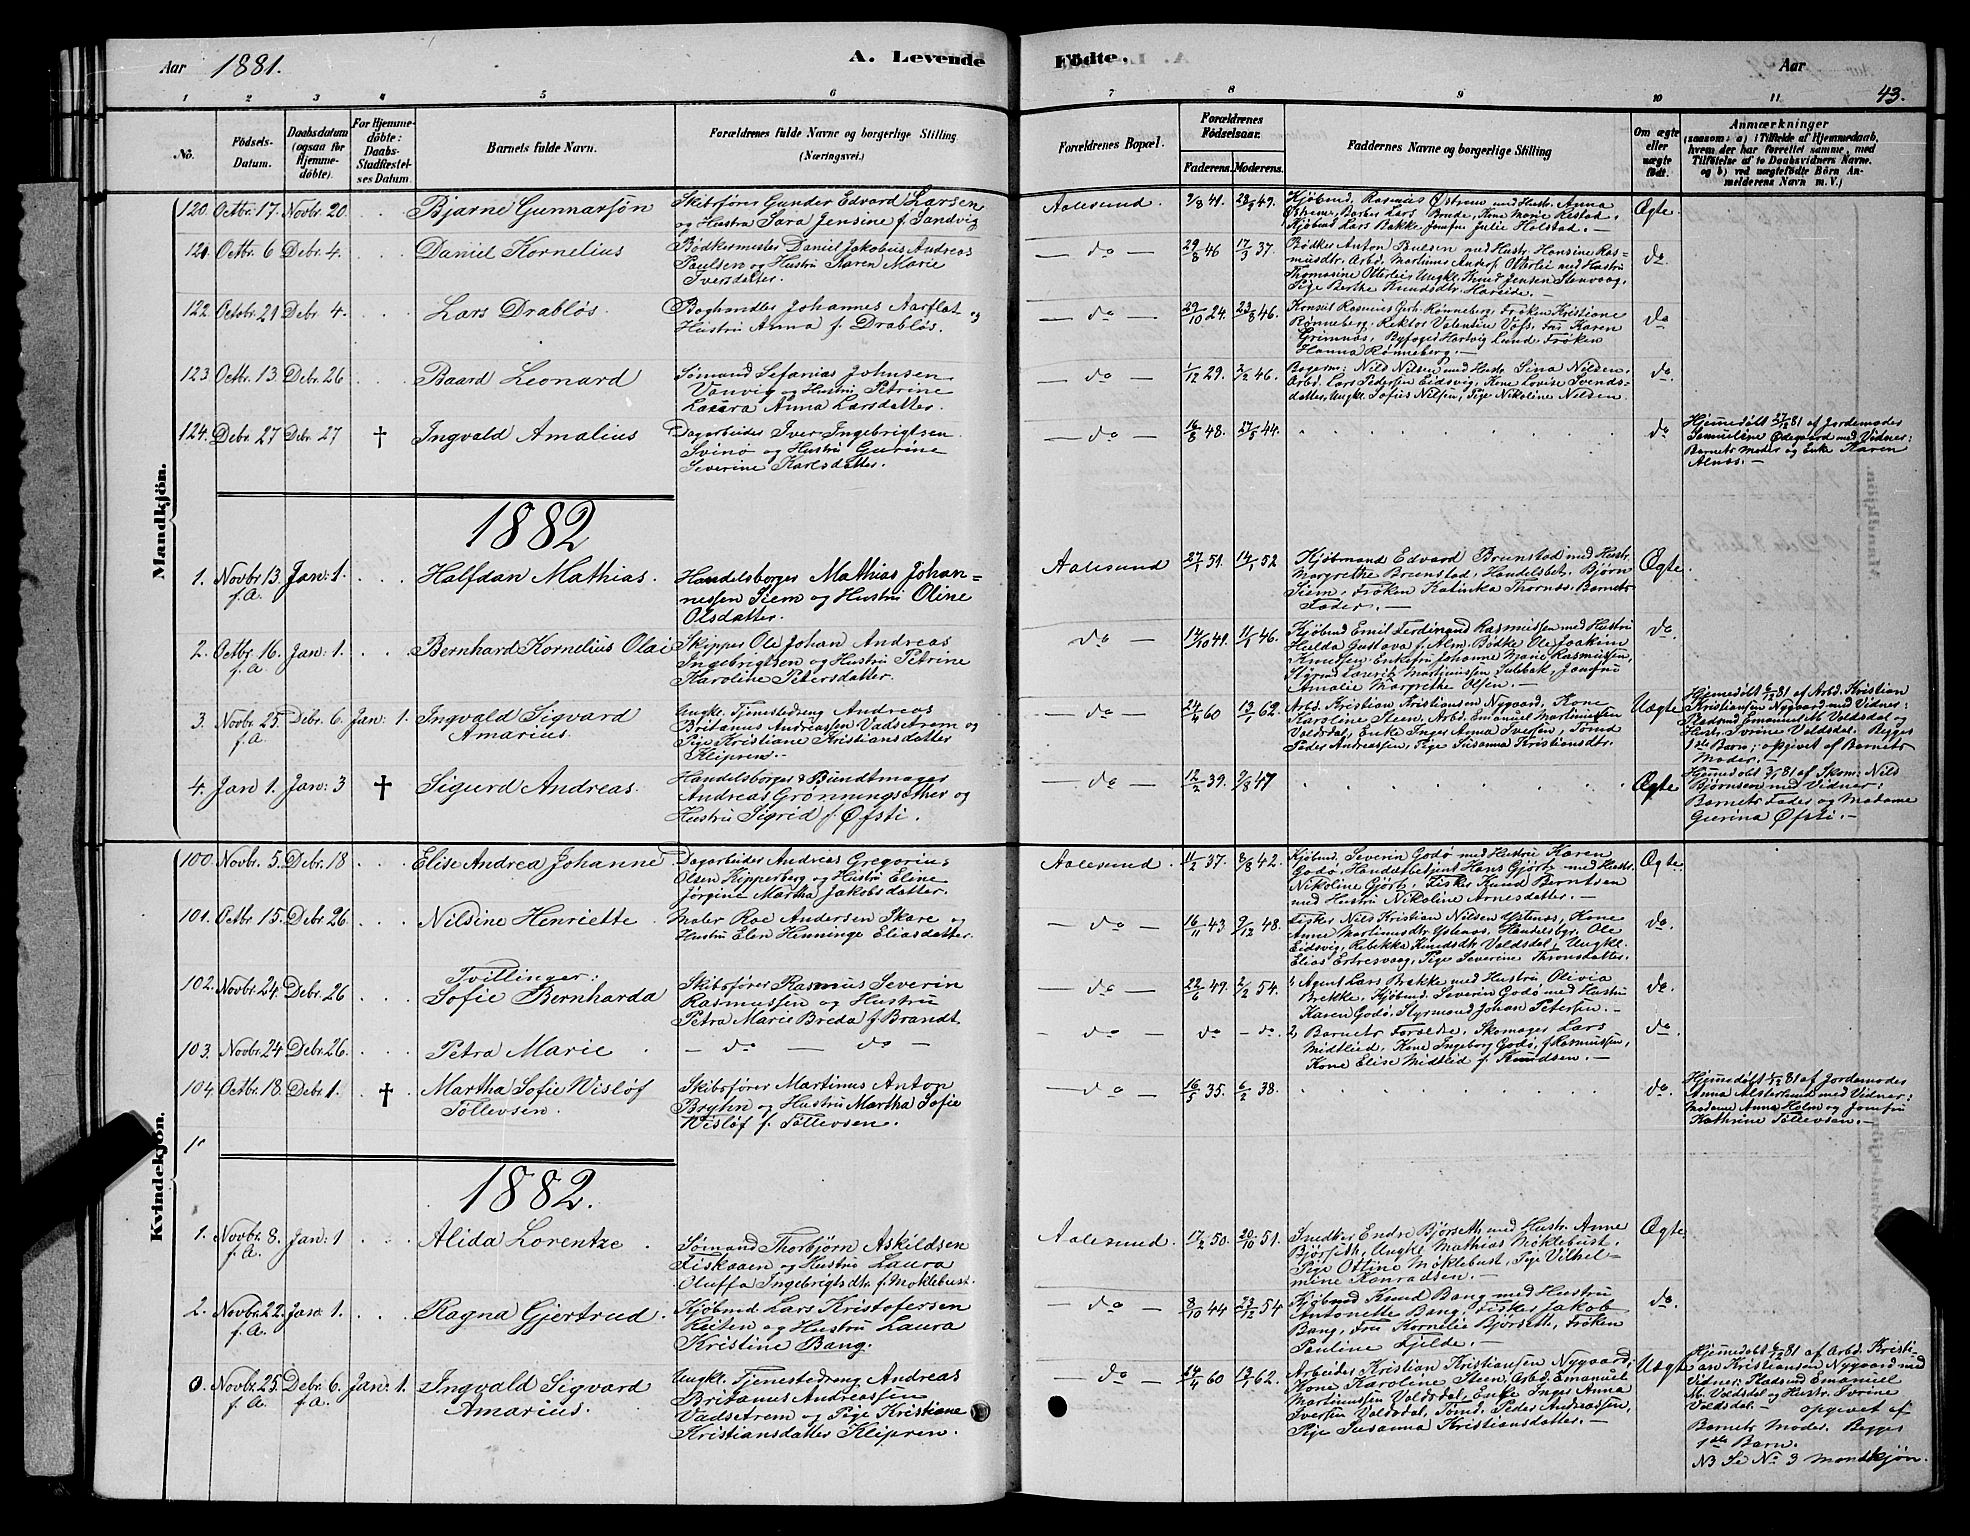 Aar 1881.
A. Levende
Födte.
Aar
43.
1 2 3 4 5 6 7 8 9 10 11
No.
Födsels-
Datum.
Daabsdatum
(ogsaa for
Hjemme-
döbte).
For Hjemme-
döbte:
Daabs-
Stadfæstel-
ses Datum.
Barnets fulde Navn.
Forældrenes fulde Navne og borgerlige Stilling
(Næringsvei.)
Forældrenes Bopæl.
Forældrenes
Födselsaar.
Faderens. Moderens.
Faddernes Navne og borgerlige Stilling
Om ægte
eller
uægte
födt.
Anmærkninger
(saasom: a) i Tilfælde af Hjemmedaab,
hvem der har forrettet samme, med
Tilföielse af to Daabsvidners Navne,
og b) ved uægtefödte Börn An-
melderens Navn m. V.)
Mandkjön.
120. Octbr. 17. Novbr. 20. Bjarne Gunnarsön
Skibsförer Gunder Edvard Larsen
og Hustru Sara Jensine f. Sandvig
Aalesund. 2/8 41. 28/9 49.
Kjöbmd. Rasmus Östrem med Hustr. Anna
Östrem, Barber Lars Brude, Kone Marie Restad,
Kjöbmd Lars Bakke Jomfru Julie Holstad.
Ægte.
121. Octbr. 6 Debr. 4. Daniel Kornelius
Bödkermester Daniel Jakobus Andreas
Paulsen og Hustru Karen Marie
Iversdatter.
do 29/8 46 17/3 37.
Bödker Anton Paulsen med Hustr. Hansine Ras-
musdtr. Arbd. Martinus Anders. Otterlei med Hustru
Thomasine Otterlei, Ungkl. Knud Jensen Stenvaag,
Pige Berthe Knudsdtr. Hareide.
do
122. Octobr. 21 Debr. 4. Lars Drablös.
Boghandler Johannes Aarflot og
Hustru Anna f. Drablös.
do 29/10 24. 23/8 46.
Konsul Rasmus Gerh. Rönneberg, Fröken Kristiane
Rönneberg, Rektor Valentin Voss, Fru Karen
Grimnös, Byfoged Hartvig Lund Fröken
Hanna Rönneberg.
do
123. Octbr. 13. Debr. 26 Baard Leonard
Sömand Sefanias Johnsen
Vanvig og Hustru Petrine
Lasara Anna Larsdatter.
do 1/12 29. 2/2 46.
Bagerm: Nils Nilsen med Hustr. Sina Nilsen.
Arbd. Lars Pedersen Eidsvig, Kone Lovise Svends-
datter, Ungkl. Sofus Nilsen, Pige Nikoline Nilsen.
do.
124. Debr. 27 Debr 27 † Ingvald Amalius
Dagarbeider Iver Ingebrigtsen
Svinö og Hustru Gurine
Severine Karlsdatter.
do 16/8 48. 27/5 44.
do
Hjemmedöbt 27/12 81 af Jordemoder
Samueline Ödegaard med Vidner:
Barnets Moder og Enke Karen
Alnös.
1882
1. Novbr 13. f.A. Jan: 1. Halfdan Mathias.
Handelsborger Mathias Johan-
nessen Siem og Hustru Oline
Olsdatter.
Aalesund 27/1 51. 14/1 52
Kjöbmand Edvard Brunstad med Hustr.
Margrethe Brunstad, Handelsbet. Björn
Siem, Fröken Katinka Thornös, Barnets
Fader.
Ægte.
2. Octbr 16. f.A Jan: 1. Bernhard Kornelius Olai
Skipper Ole Johan Andreas
Ingebrigtsen og Hustru Petrine
Karoline Petersdatter.
do 14/10 41. 11/1 46.
Kjöbmd Emil Ferdinand Rasmussen med Hustru
Hulda Gustava f. Alm Bödker Ole Joakim
Knutsen Enkefru Johanne Marie Rasmussen,
Styrmd Laurits Martinussen Sulebak, Jomfru
Amalie Margrethe Olsen.
do
3. Novbr 25. f.A. Debr. 6. Jan: 1. Ingvald Sigvard
Amarius.
Ungkl. Tjenestedreng Andreas
Britanus Andreassen Vadsetrem og
Pige Kristiane Kristiansdatter
Klipren.
do 24/4 60 13/1 62.
Arbd. Kristian Kristiansen Nygaard, Kone
Karoline Steen, Arbd. Emanuel Martinussen
Valdsdal, Enke Inger Anna Iversen, Tömd
Peder Andreassen, Pige Susanna Kristiansdtr.
Uægte
Hjemmedöbt 6/12 81 af Arbd. Kristian
Kristiansen Nygaard med Vidner:
Pladsmd Emanuel M. Valdsdal og
Hustr. Ivrine Valdsdal. Begges
1ste Barn; opgivet af Barnets
Moder.
4. Jan 1. Jan: 3 † Sigurd Andreas.
Handelsborger & Bundtmager
Andreas Grönningsæther og
Hustru Sigrid f. Öfsti.
do 12/2 39. 9/8 47
Ægte
Hjemmedöbt 3/1 81 af Skom: Nils
Björnsen med Vidner:
Barnets Fader og Madame
Gurina Öfsti.
Kvindekjön.
100. Novbr. 5. Debr. 18 Elise Andrea Johanne
Dagarbeider Andreas Gregorius
Olsen Kipperberg og Hustru Eline
Jörgine Martha Jakobsdatter.
Aalesund. 11/2 37. 8/8 42.
Kjöbmd. Severin Godö med Hustru Karen
Godö, Handelsbetjent Hans Gjört med Hustr.
Nikoline Gjört, Fisker Knud Berntsen
med Hustru Nikoline Arnesdatter.
Ægte
101. Octbr. 15. Debr. 26. Nilsine Henriette
Maler Roe Andersen Skare og
Hustru Elen Henninge Eliasdatter.
do 16/11 43 9/12 48.
Fisker Nils Kristian Nilsen Ystenös, Kone
Anne Martinusdtr. Ystenös, Handelsbgr. Ole
Eidsvig, Rebekka Knudsdtr. Valdsdal, Ungkl.
Elias Ertresvaag, Pige Severine Thronsdatter.
do.
Tvillinger:
102. Novbr. 24. Debr. 26 Sofie Bernharda
Skibsförer Rasmus Severin
Rasmussen og Hustru
Petra Marie Breda f. Brandt
do 22/6 49. 2/2 54.
1 Agent Lars Brekke med Hustru Olivia
Brekke, Kjöbmd. Severin Godö med Hustru
Karen Godö, Styrmand Johan Petersen.
do.
103. Novbr. 24 Debr. 26. Petra Marie
do do
do do do.
2 Barnets Forældre, Skomager Lars
Midtlied, Kone Ingeborg Godö, f. Rasmussen,
Kone Elise Midtlid f. Knudsen.
do.
104. Octbr. 18. Debr. 1. † Martha Sofie Wislöf
Töllevsen.
Skibsförer Martinus Anton
Bryhn og Hustru Martha Sofie
Wislöf f. Töllevsen.
do 16/5 35. 6/2 38.
do.
Hjemmedöbt 1/12 81 af Jordemoder
Anna Alsterlund med Vidner:
Madame Anna Holm og Jomfru
Kathrine Töllevsen.
1
1882.
1. Novbr 8. f.A. Jan: 1 Alida Lorentze
Sömand Thorbjörn Askildsen
Fiskaaen og Hustru Laura
Oluffa Ingebrigtsdtr. f. Moklebust.
Aalesund. 17/2 50. 20/10 51.
Snedker Endre Björseth med Hustr. Anne
Björseth, Ungkl. Mathias Möklebust,
Pige Ottine Möklebust, Pige Vilhel-
mine Konradsen.
Ægte.
2. Novbr. 22. f.A. Jan: 1. Ragna Gjertrud
Kjöbmd Lars Kristofersen
Reiten og Hustru Laura
Kristine Bang.
do 8/10 44 23/12 54
Kjöbmd Knud Bang med Hustru
Antonette Bang, Fisker Jakob
Bang, Fru Kornelie Björseth, Fröken
Pauline Fjelde.
do.
0. Novbr. 25. f.A. Debr. 6. f.A. Jan: 1. Ingvald Sigvard
Amarius.
Ungkl. Tjenestedreng Andreas
Britanus Andreassen
Vadsetrem og Pige Kristiane
Kristiansdatter Klipren.
do 24/4 60 13/1 62.
Arbeider Kristian Kristiansen Nygaard,
Kone Karoline Steen, Arbd. Emanuel
Martinussen Valdsdal, Enke Inger Anna
Iversen Valdsdal, Tömd. Peder Andreassen,
Pige Susanna Kristiansdatter.
Uægte
Hjemmedöbt 6/12 81 af Arbd. Kristi-
an Kristiansen Nygaard med
Vidner: Pladsmd Emanuel
M. Valdsdal og Hustr. Ivrine
Valdsdal. opgivet af
Barnets Moder. Begges
1ste Barn.
NB Se No 3 mandkjön.